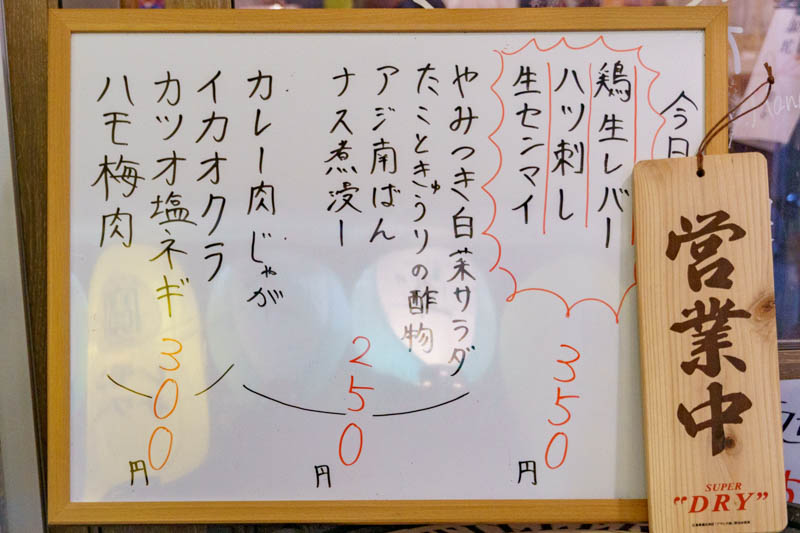 今日
鶏生レバー
ハツ刺し
生センマイ
350
円
やみつき白菜サラダ
たこときゅうりの酢物
アジ南ばん
ナス煮浸ー
カレー肉じゃが
250
円
イカオクラ
カツオ塩ネギ
ハモ梅肉
300
円
営業中
SUPER
"DRY"